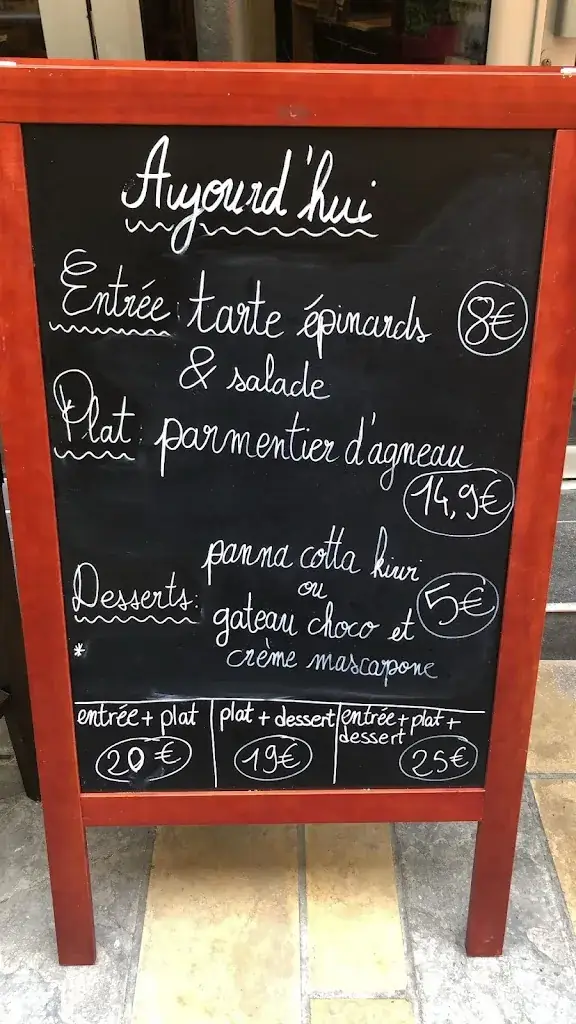 Aujourd'hui
Entrée : tarte épinards 8€
& salade
Plat : parmentier d'agneau
14,9€
panna cotta kiwi
ou
Desserts : 5€
gateau choco et
* crème mascarpone
entrée + plat
20 €
plat + dessert
19€
entrée + plat +
dessert
25€